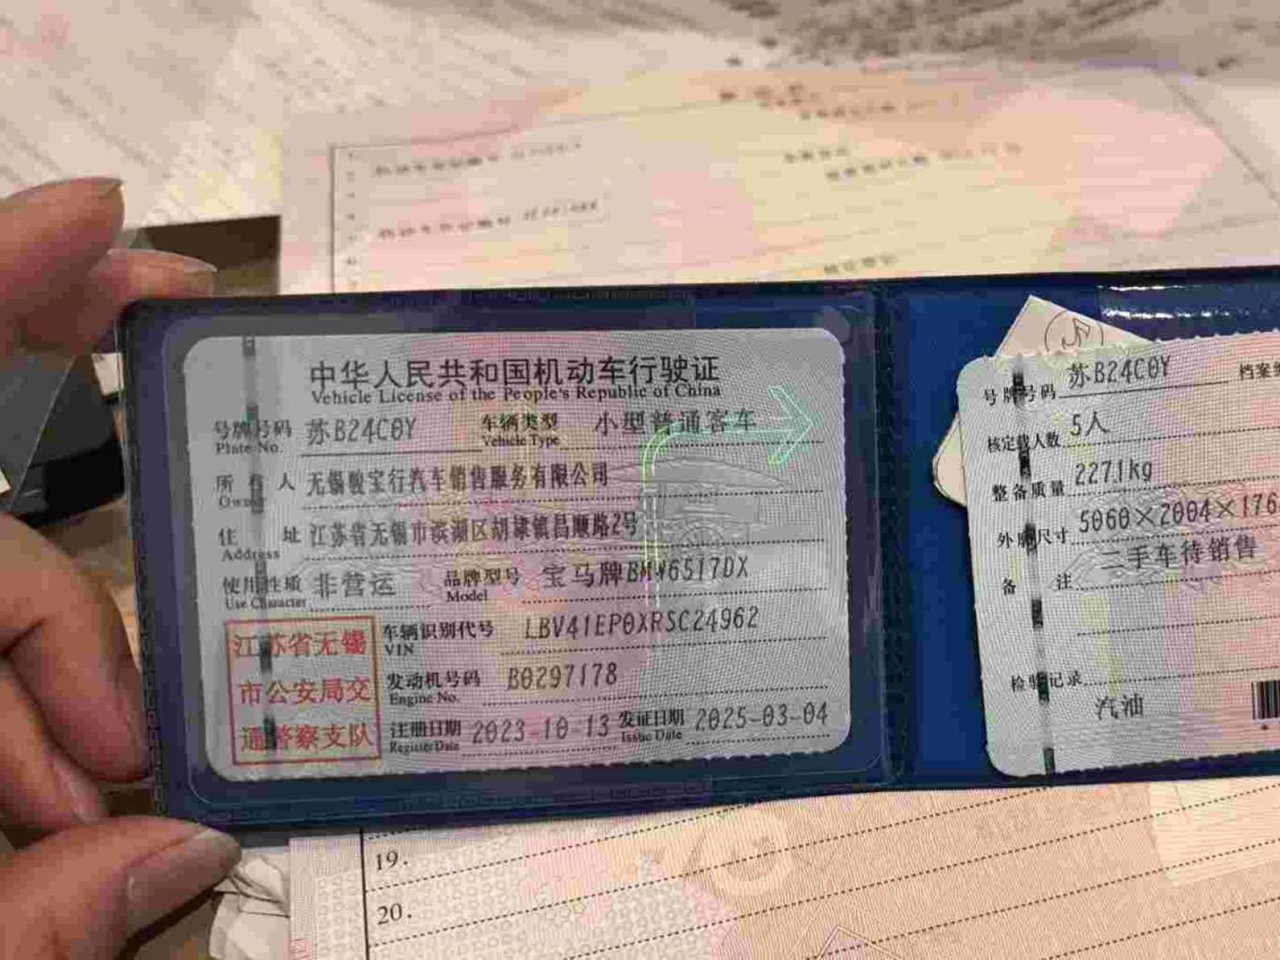 中华人民共和国机动车行驶证
Vehicle License of the People's Republic of China
号牌号码 苏B24C0Y 车辆类型 小型普通客车
Plate No. Vehicle Type
所有人 无锡骏宝行汽车销售服务有限公司
Owner
住址 江苏省无锡市滨湖区胡埭镇昌顺路2号
Address
使用性质 非营运 品牌型号 宝马牌BMW6517DX
Use Character Model
江苏省无锡
市公安局交
通警察支队
车辆识别代号 LBV41EP0XRSC24962
VIN
发动机号码 B0297178
Engine No.
注册日期 2023-10-13 发证日期 2025-03-04
Register Date Issue Date
号牌号码 苏B24C0Y 档案
核定载人数 5人
整备质量 2271kg
外廓尺寸 5060×2004×176
备注 二手车待销售
检验记录
汽油
19.
20.